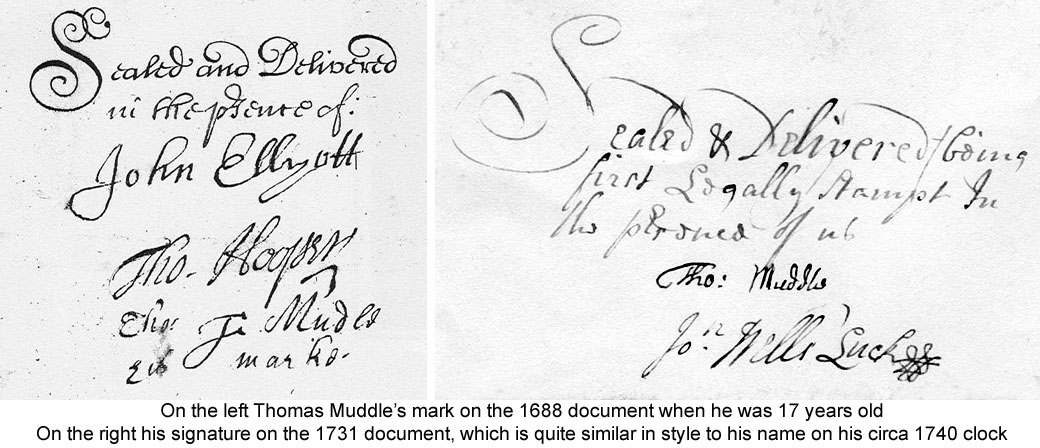 Sealed and Delivered
in the prsence of:
John Ellyott
Tho. Hooper
Tho: Mudle
his marke.
Sealed & Delivered / being
first Legally stampt In
the presence of us
Tho: Muddle
Jon. Wells Luck
On the left Thomas Muddle’s mark on the 1688 document when he was 17 years old
On the right his signature on the 1731 document, which is quite similar in style to his name on his circa 1740 clock